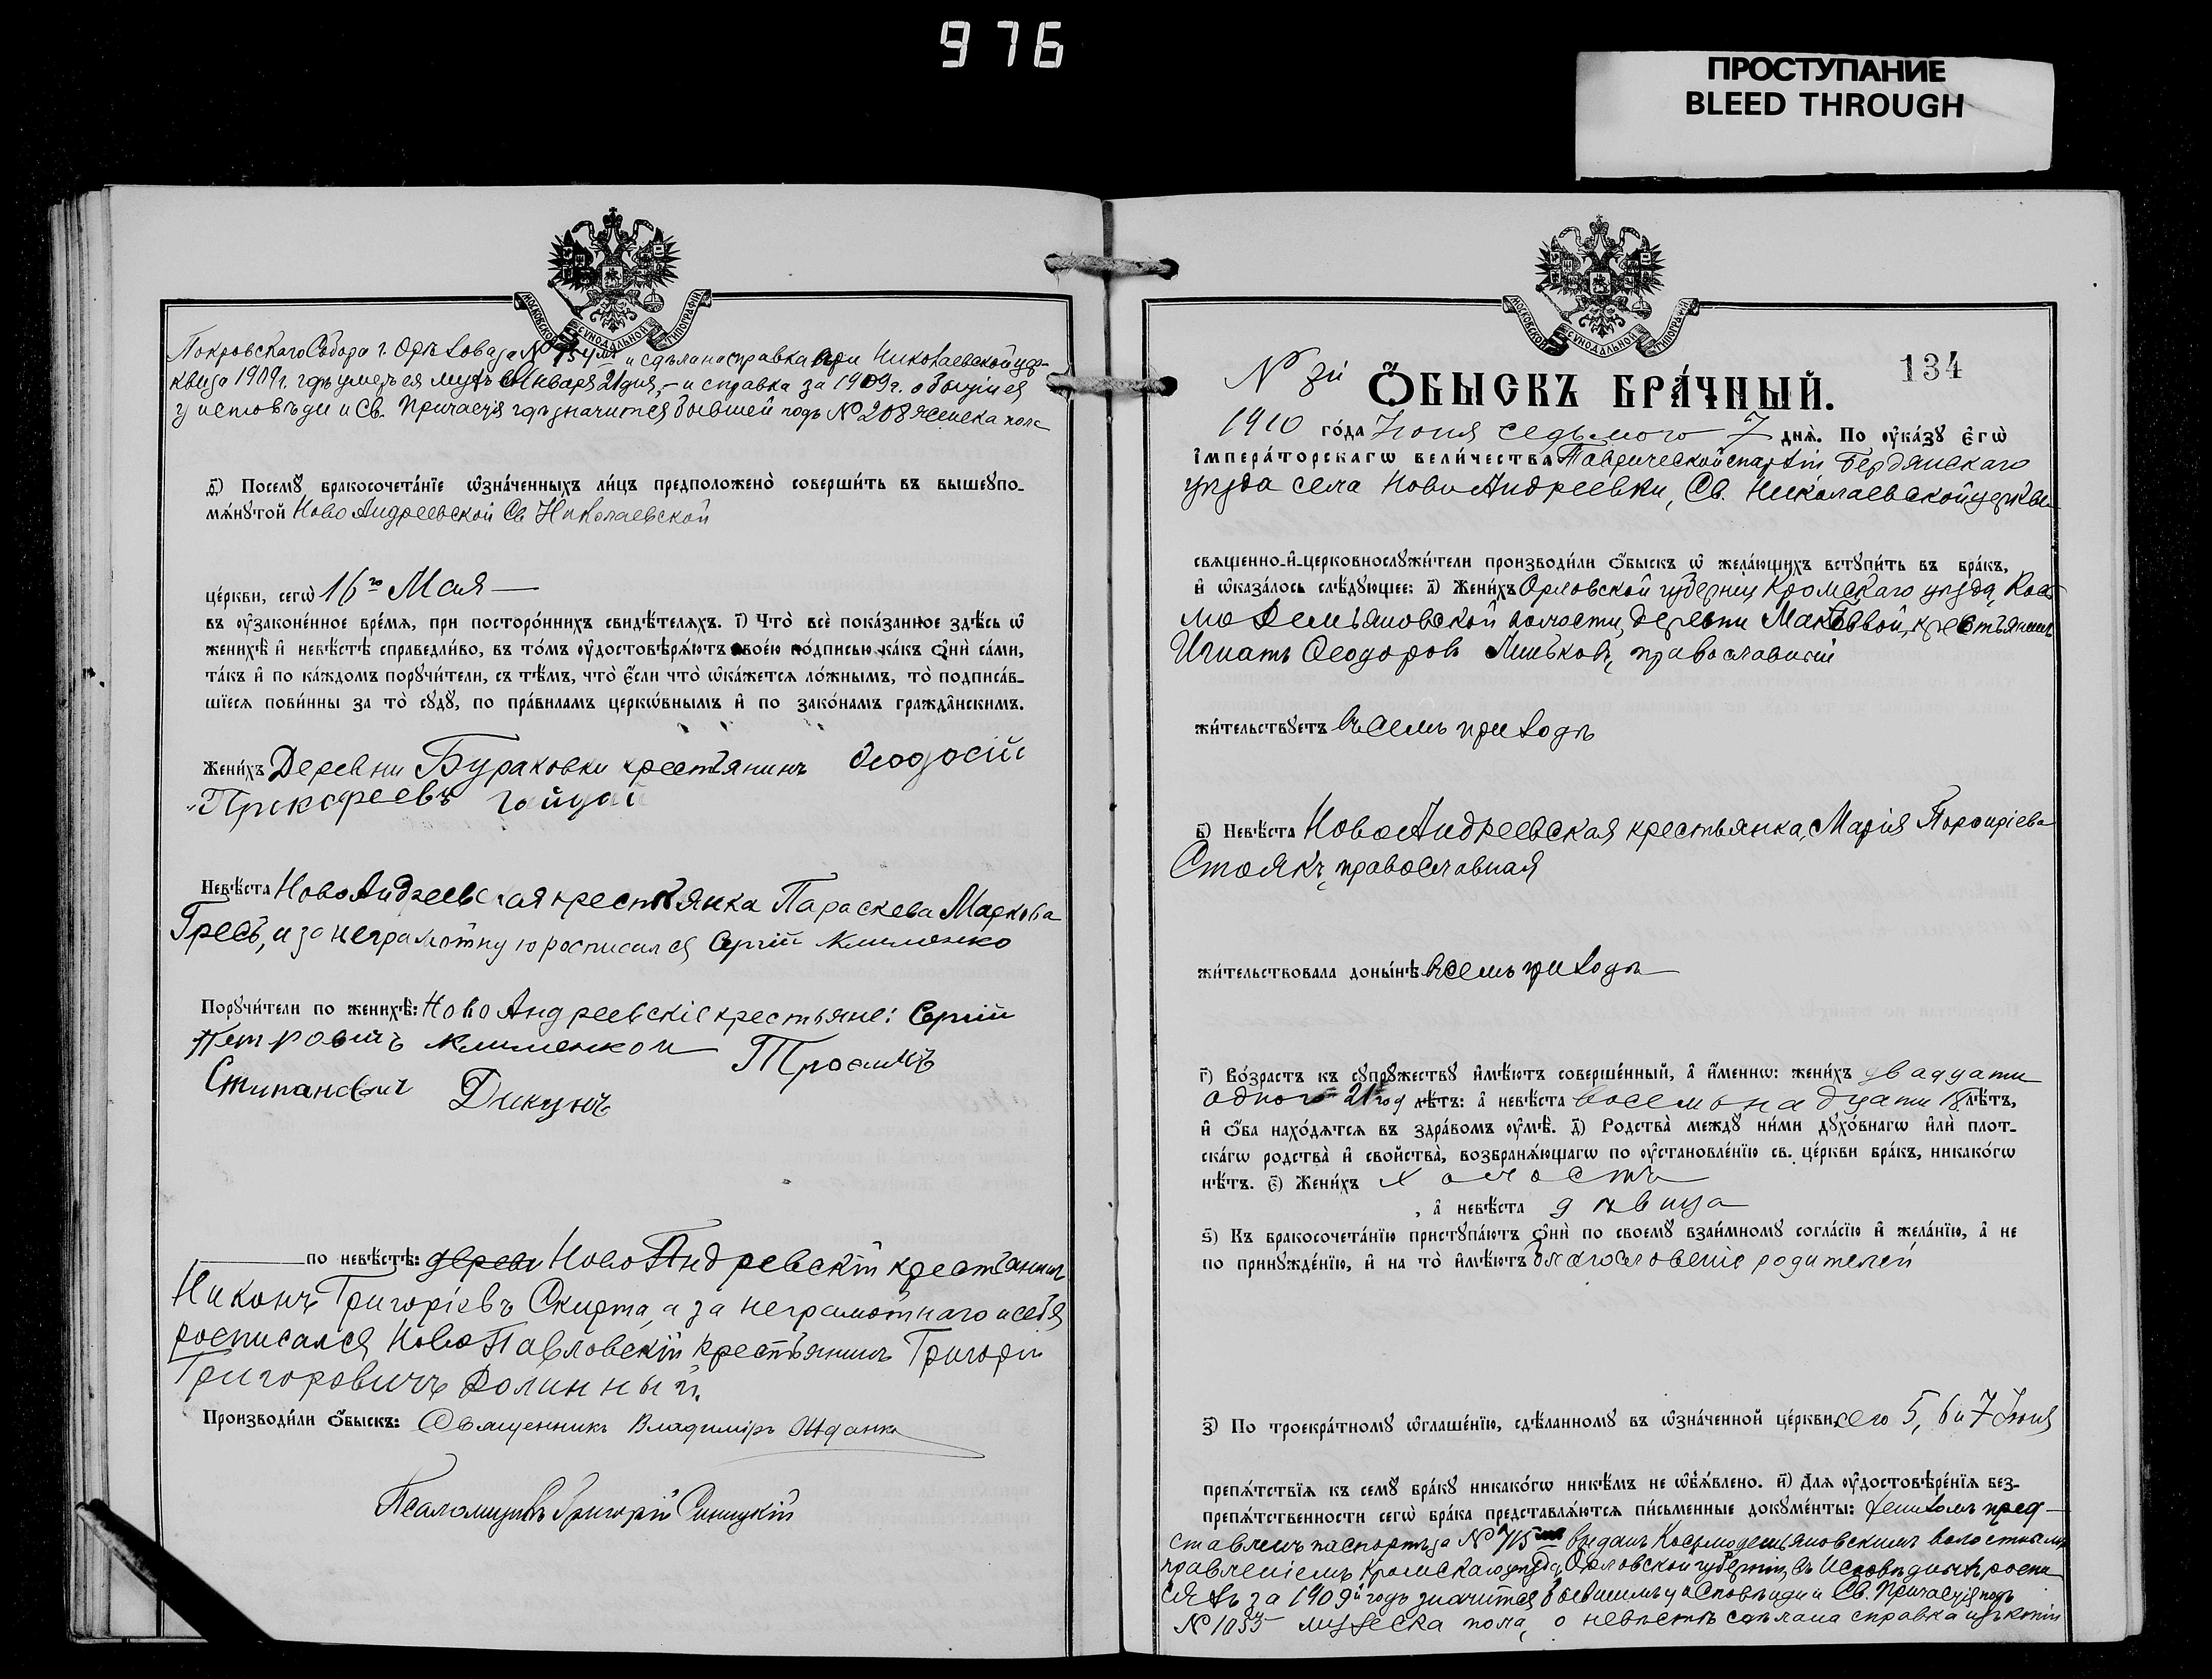 976
ПРОСТУПАНИЕ
BLEED THROUGH
МОСКОВСКОЙ СѴНОДАЛЬНОЙ ТИПОГРАФІИ
Покровскаго Собора г. Орѣхова за № и сдѣлана справка при Николаевской цер-
кви за 1909 г. гдѣ умеръ ея мужъ Января 21 дня, - и справка за 1909 г. о бытіи ея
у исповѣди и Св. Причастія гдѣ значится бывшей подъ № 208 женска пола
д҃) Посемꙋ бракосочета́нїе ѡ҆зна́ченныхъ ли́цъ предположено̀ соверши́ть въ вышеꙋпо-
мѧ́нꙋтой Ново Андреевской Св Николаевской
це́ркви, сегѡ̀ 16го Мая —
въ ᲂу҆законе́нное вре́мѧ, при посторо́ннихъ свидѣ́телѧхъ. і҃) Что̀ всѐ пока́занное здѣ́сь ѡ҆
женихѣ̀ и҆ невѣ́стѣ справедли́во, въ то́мъ ᲂу҆достовѣрѧ́ютъ свое́ю по́дписью ка́къ ѻ҆нѝ са́ми,
та́къ и҆ по ка́ждомъ порꙋчи́тели, съ тѣ́мъ, что̀ є҆́сли что̀ ѡ҆ка́жетсѧ ло́жнымъ, то̀ подписа́в-
шїесѧ пови́нны за то̀ сꙋдꙋ̀, по пра́виламъ церкѡ́внымъ и҆ по зако́намъ гражда̑нскимъ.
Жени́хъ Деревни Бураковки крестьянинъ Ѳеодосій
Прокофеевъ Гайдай
Невѣ́ста Ново Андреевская крестьянка Параскева Маркова
Гресь, и за неграмотную росписался Сергій Клименко
Порꙋчи́тели по женихѣ̀: Ново Андреевскіе крестьяне: Сергій
Петровичъ Клименко и Трофимъ
Стипановичъ Дикунъ
по невѣ́стѣ: Ново Андреевскій крестьянинъ
Никонъ Григоріевъ Скирта, а за неграмотнаго и себя
росписался Ново Павловскій крестьянинъ Григорій
Григоровичъ Долинный.
Производи́ли ѻ҆́быскъ: Священникъ Владиміръ Жданко
Псаломщикъ Григорій Синицкій
МОСКОВСКОЙ СѴНОДАЛЬНОЙ ТИПОГРАФІИ
№ зі 134
Ѻ҆́БЫСКЪ БРА́ЧНЫЙ.
1910 го́да Іюня седьмого 7 днѧ̀. По ᲂу҆ка́зꙋ є҆гѡ̀
і҆мпера́торскагѡ вели́чества Таврической епархіи Бердянскаго
уѣзда села Ново Андреевки, Св. Николаевской церкви
свѧщенно-и҆-церковнослꙋжи́тели производи́ли ѻ҆́быскъ ѡ҆ жела́ющихъ встꙋпи́ть въ бра́къ,
и҆ ѡ҆каза́лось слѣ́дꙋющее: а҃) Жени́хъ Орловской губерніи Кромскаго уѣзда, Кось
мо Демьяновской волости, деревни Макѣевой, крестьянинъ
Игнатъ Ѳеодоровъ православный
жи́тельствꙋетъ въ семъ приходѣ
в҃) Невѣ́ста Ново Андреевская крестьянка, Марія Порфиріева
Стоякъ, православная
жи́тельствовала доны́нѣ въ семъ приходѣ
г҃) Во́зрастъ къ сꙋпрꙋ́жествꙋ и҆мѣ́ютъ соверше́нный, а҆ и҆́меннѡ: жени́хъ двадцати
одного 21 год лѣ́тъ: а҆ невѣ́ста восемьнадцати 18 лѣ́тъ,
и҆ ѻ҆́ба нахо́дѧтсѧ въ здра́вомъ ᲂу҆мѣ̀. д҃) Родства̀ междꙋ̀ ни́ми дꙋхо́внагѡ и҆лѝ плот-
ска́гѡ родства̀ и҆ свойства̀, возбранѧ́ющагѡ по ᲂу҆становле́нїю св. це́ркви бра́къ, никако́гѡ
нѣ́тъ. є҃) Жени́хъ холостъ
, а҆ невѣ́ста дѣвица
ѕ҃) Къ бракосочета́нїю пристꙋпа́ютъ ѻ҆нѝ по своемꙋ̀ взаи́мномꙋ согла́сїю и҆ жела́нїю, а҆ не
по принꙋжде́нїю, и҆ на то̀ и҆мѣ́ютъ благословеніе родителей
з҃) По троекра́тномꙋ ѡ҆глаше́нїю, сдѣ́ланномꙋ въ ѡ҆зна́ченной це́ркви, сего 5, 6 и 7 Іюня
препѧ́тствїѧ къ семꙋ̀ бра́кꙋ никако́гѡ никѣ́мъ не ѡ҆б̾ѧ́влено. и҃) Длѧ ᲂу҆достовѣре́нїѧ без-
препѧ́тственности сегѡ̀ бра́ка представлѧ́ютсѧ пи́сьменные докꙋме́нты: женихомъ пред-
ставленъ паспортъ за № 715 выданъ Косьмодемьяновскимъ волостнымъ
правленіемъ Кромскаго уѣзда, Орловской губерніи, въ Исповѣдныхъ роспи
сяхъ за 1909й годъ значится бывшимъ у Исповѣди и Св. Причастія подъ
№ 1053 мужеска пола, о невѣстѣ сдѣлана справка изъ копіи